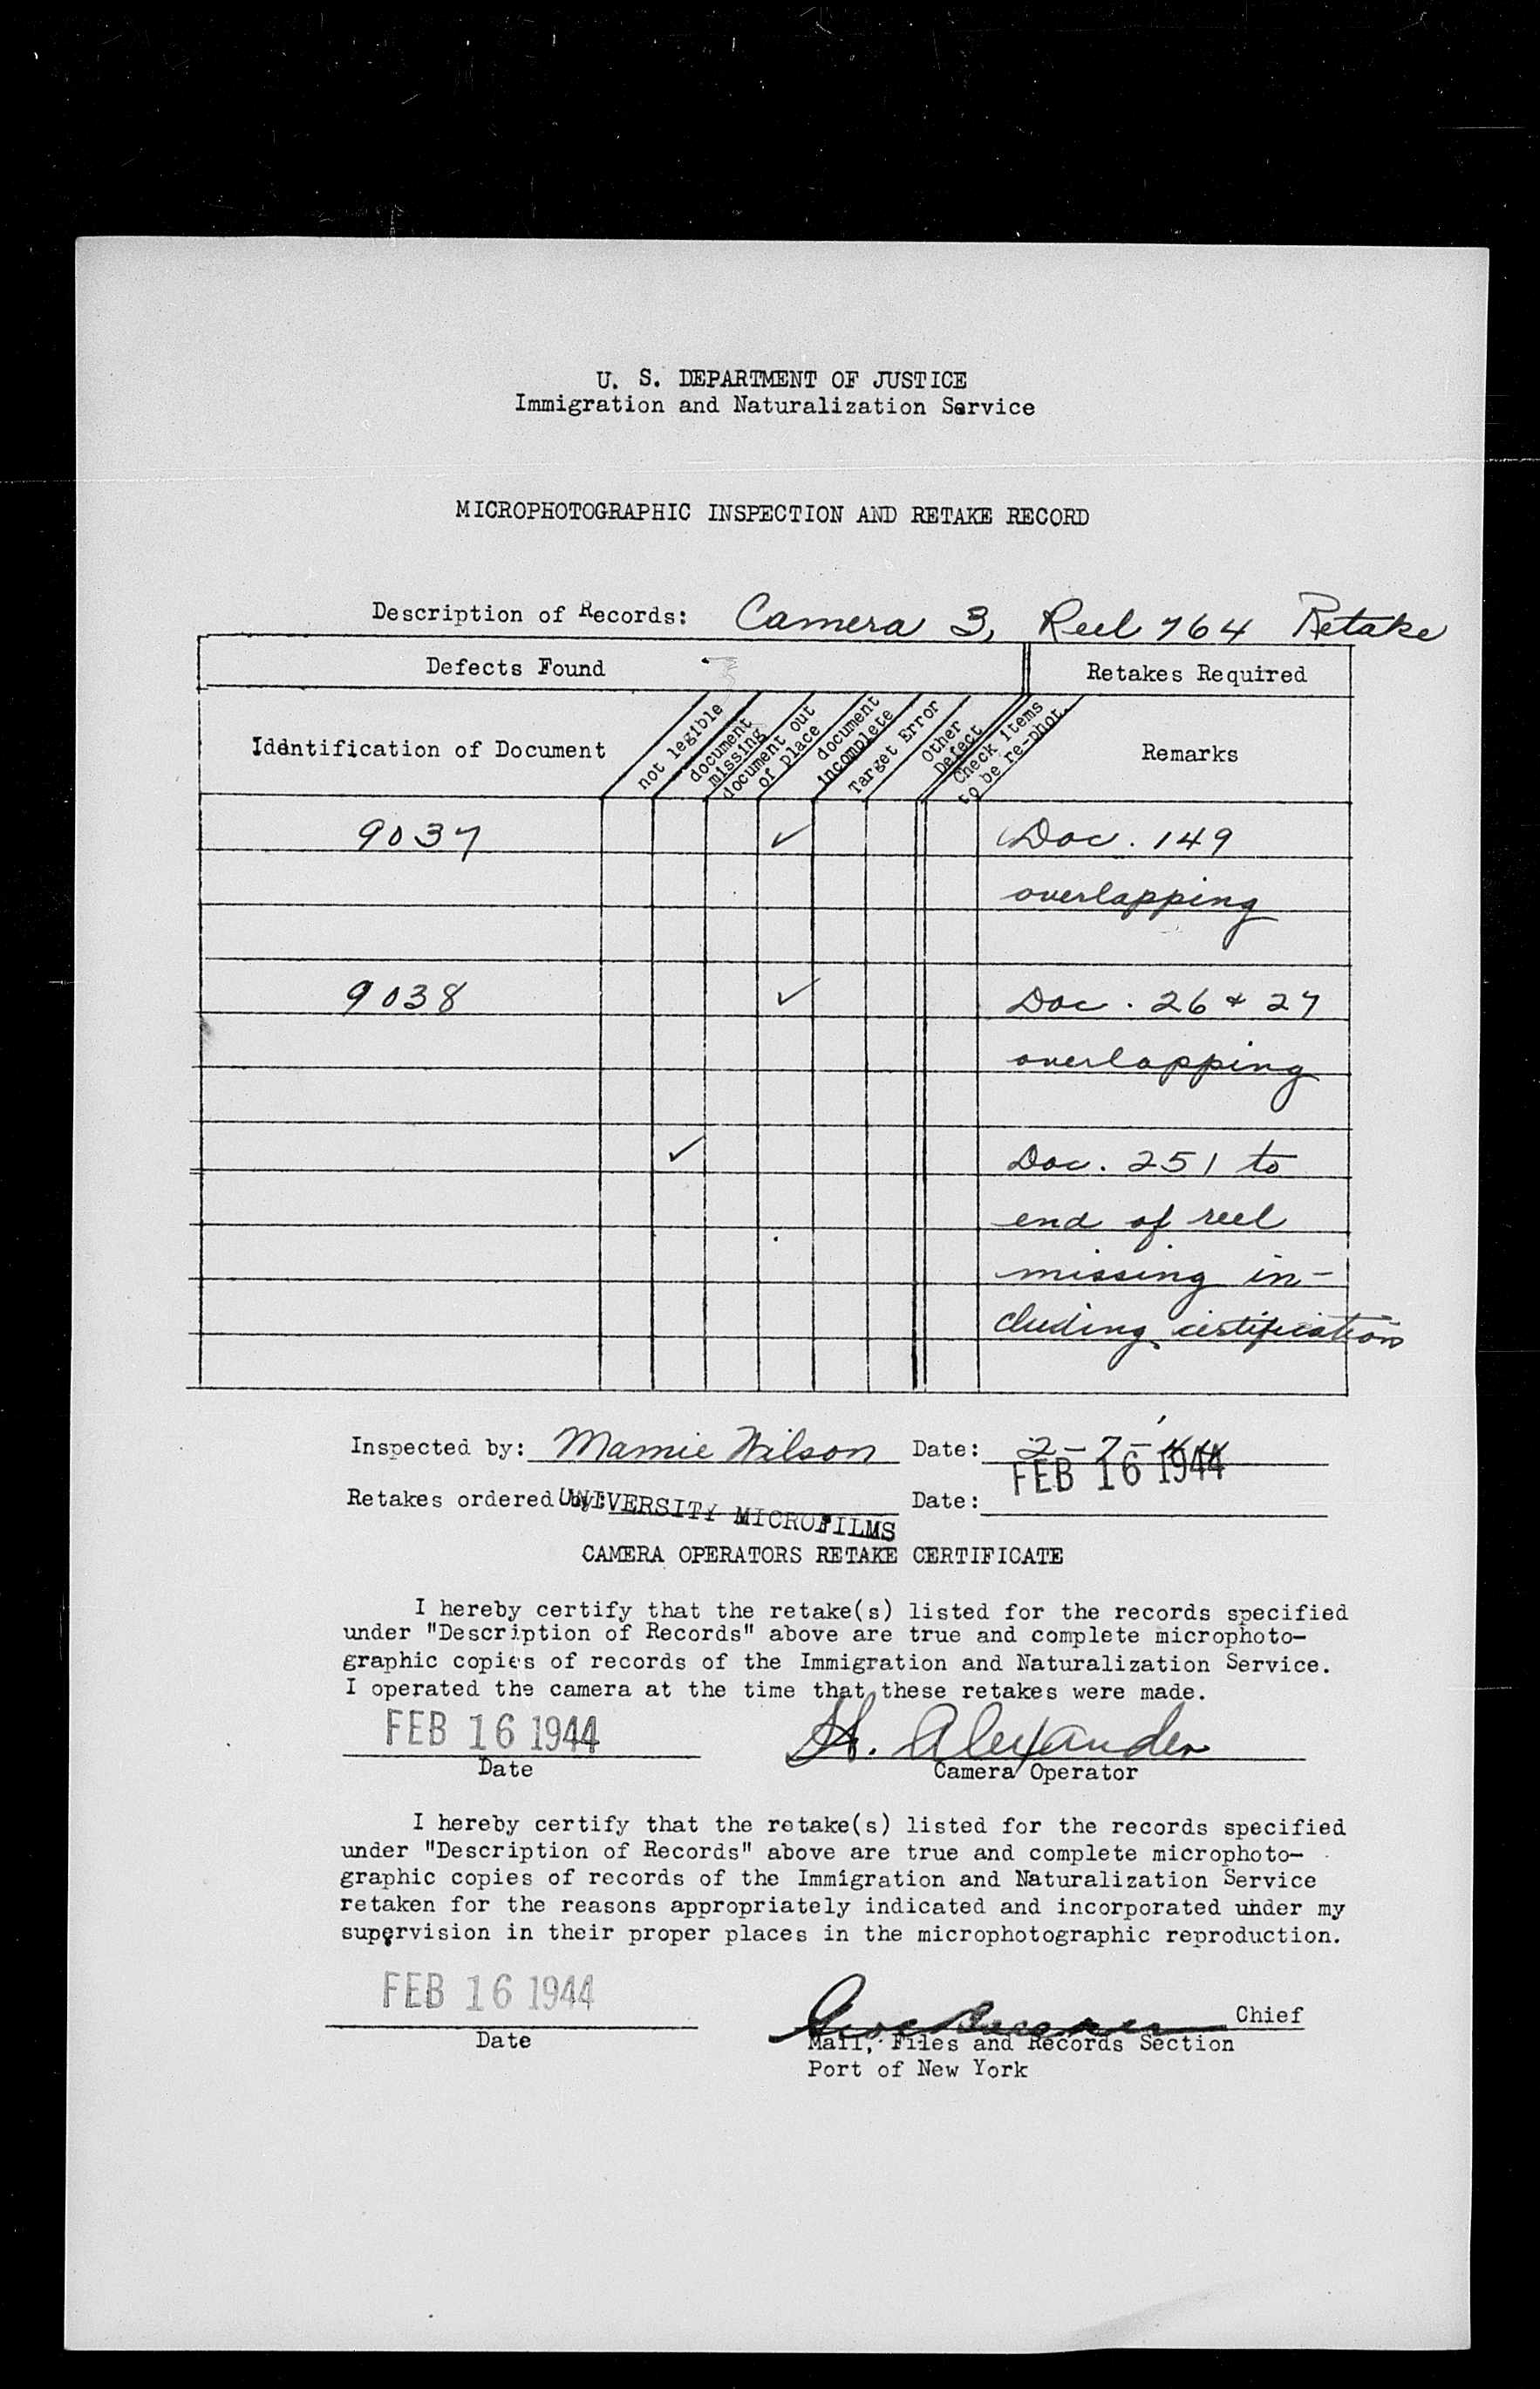 U. S. DEPARTMENT OF JUSTICE
Immigration and Naturalization Service
MICROPHOTOGRAPHIC INSPECTION AND RETAKE RECORD
Description of Records: Camera 3, Reel 764 Retake
Defects Found
Retakes Required
Identification of Document
not legible
document missing
document out of place
document incomplete
Target Error
Other Defect
Check items to be re-phot.
Remarks
9037 ✓ Doc. 149
overlapping
9038 ✓ Doc. 26 & 27
overlapping
✓ Doc. 251 to
end of reel
missing in-
cluding certification
Inspected by: Mamie Wilson Date: 2-7-44
FEB 16 1944
Retakes ordered by: UNIVERSITY MICROFILMS Date:
CAMERA OPERATORS RETAKE CERTIFICATE
I hereby certify that the retake(s) listed for the records specified
under "Description of Records" above are true and complete microphoto-
graphic copies of records of the Immigration and Naturalization Service.
I operated the camera at the time that these retakes were made.
FEB 16 1944 H. Alexander
Date Camera Operator
I hereby certify that the retake(s) listed for the records specified
under "Description of Records" above are true and complete microphoto-
graphic copies of records of the Immigration and Naturalization Service
retaken for the reasons appropriately indicated and incorporated under my
supervision in their proper places in the microphotographic reproduction.
FEB 16 1944 Chief
Date Mail, Files and Records Section
Port of New York